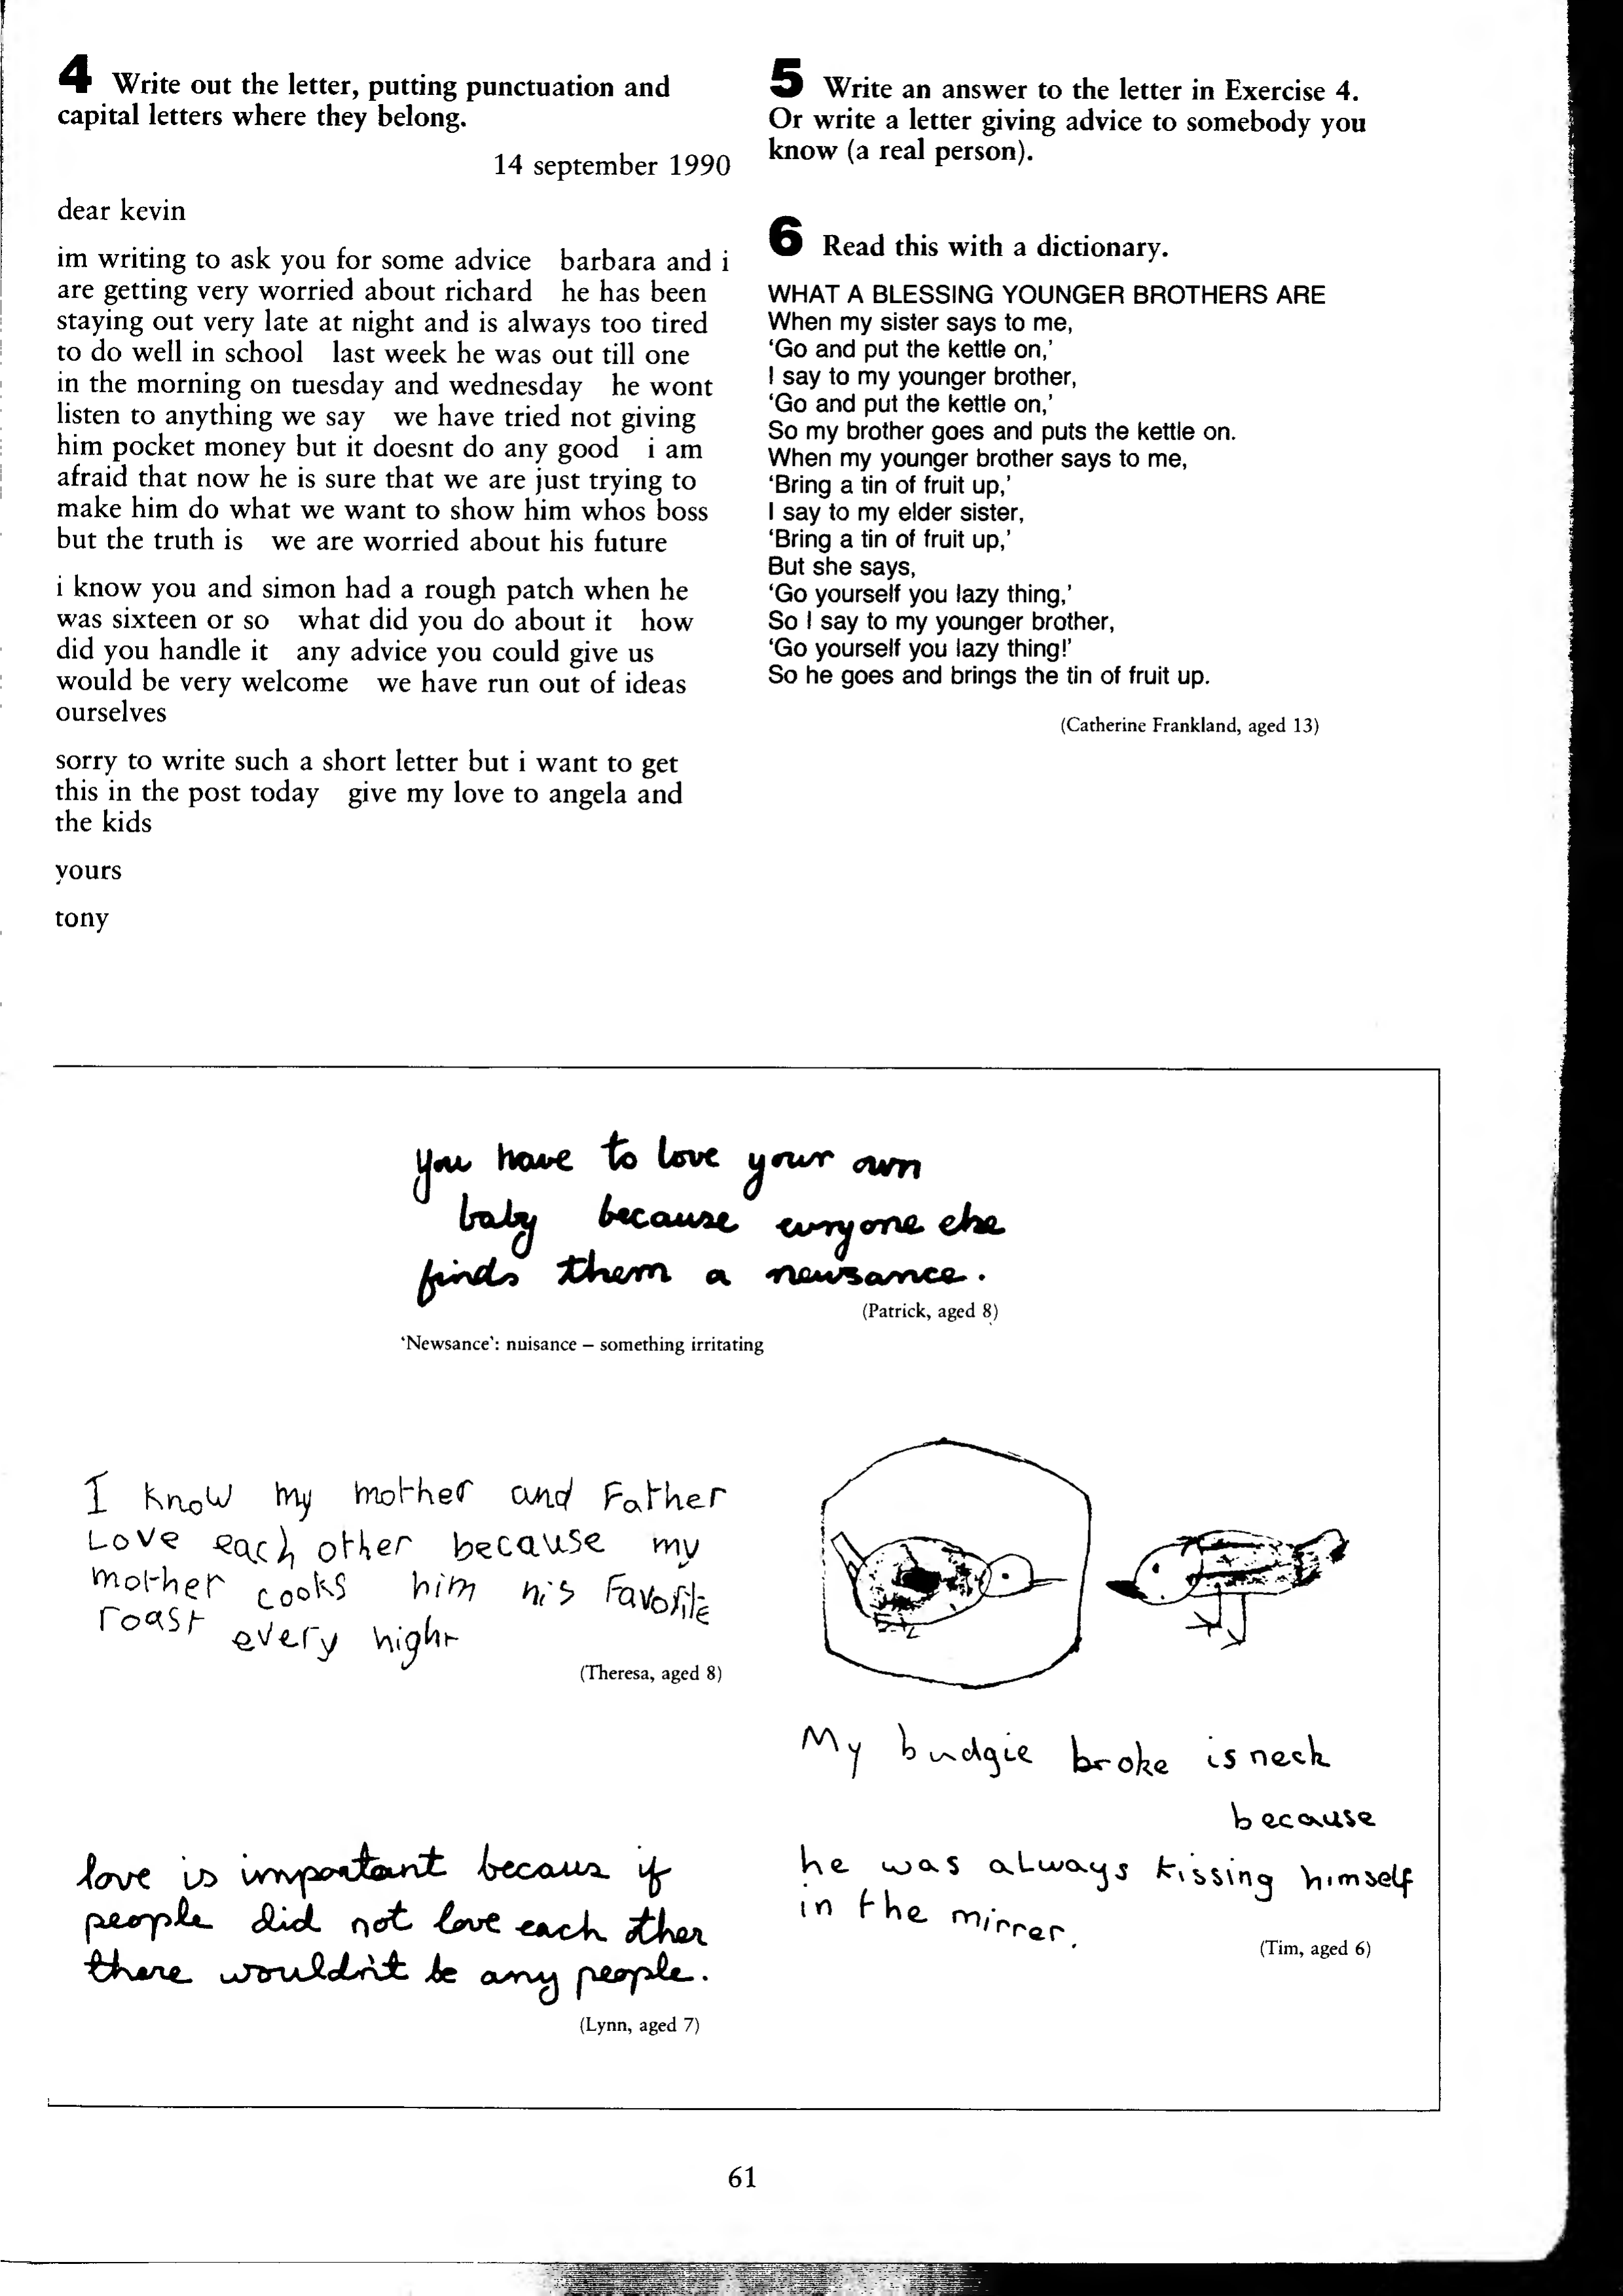 4 Write out the letter, putting punctuation and
capital letters where they belong.
14 september 1990
dear kevin
im writing to ask you for some advice   barbara and i
are getting very worried about richard   he has been
staying out very late at night and is always too tired
to do well in school   last week he was out till one
in the morning on tuesday and wednesday   he wont
listen to anything we say   we have tried not giving
him pocket money but it doesnt do any good   i am
afraid that now he is sure that we are just trying to
make him do what we want to show him whos boss
but the truth is   we are worried about his future
i know you and simon had a rough patch when he
was sixteen or so   what did you do about it   how
did you handle it   any advice you could give us
would be very welcome   we have run out of ideas
ourselves
sorry to write such a short letter but i want to get
this in the post today   give my love to angela and
the kids
yours
tony
5 Write an answer to the letter in Exercise 4.
Or write a letter giving advice to somebody you
know (a real person).
6 Read this with a dictionary.
WHAT A BLESSING YOUNGER BROTHERS ARE
When my sister says to me,
‘Go and put the kettle on,’
I say to my younger brother,
‘Go and put the kettle on,’
So my brother goes and puts the kettle on.
When my younger brother says to me,
‘Bring a tin of fruit up,’
I say to my elder sister,
‘Bring a tin of fruit up,’
But she says,
‘Go yourself you lazy thing,’
So I say to my younger brother,
‘Go yourself you lazy thing!’
So he goes and brings the tin of fruit up.
(Catherine Frankland, aged 13)
you have to love your own
baby because evryone else
finds them a newsance.
(Patrick, aged 8)
‘Newsance’: nuisance – something irritating
I know my mother and Father
Love each other because my
mother cooks him his Favorite
roast every night
(Theresa, aged 8)
love is important becaus if
people did not love each other
there wouldn't be any people.
(Lynn, aged 7)
My budgie broke is neck
because
he was always kissing himself
in the mirrer.
(Tim, aged 6)
61